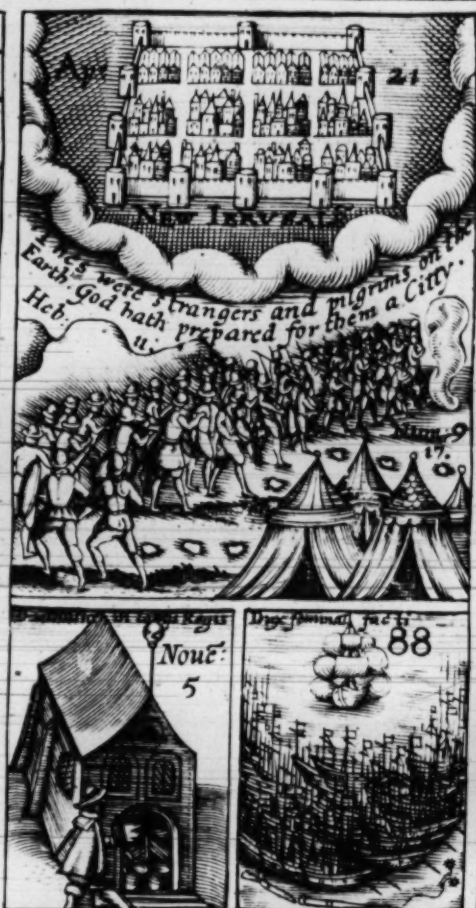 Apo 21
NEW IERUSALE
They were strangers and pilgrims on the
Earth. God hath prepared for them a Citty.
Heb: 11.
Num: 9
17.
in Regis
Noue:
5
Dux fœmina facti
88